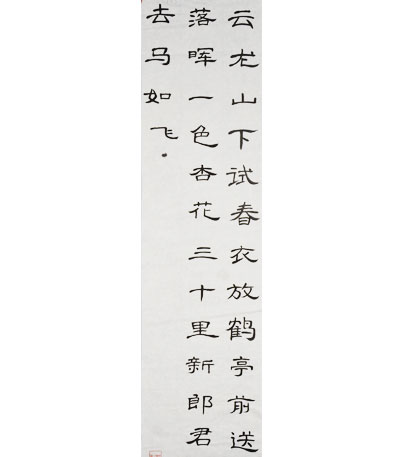 云龙山下试春衣放鹤亭前送
落晖一色杏花三十里新郎君
去马如飞